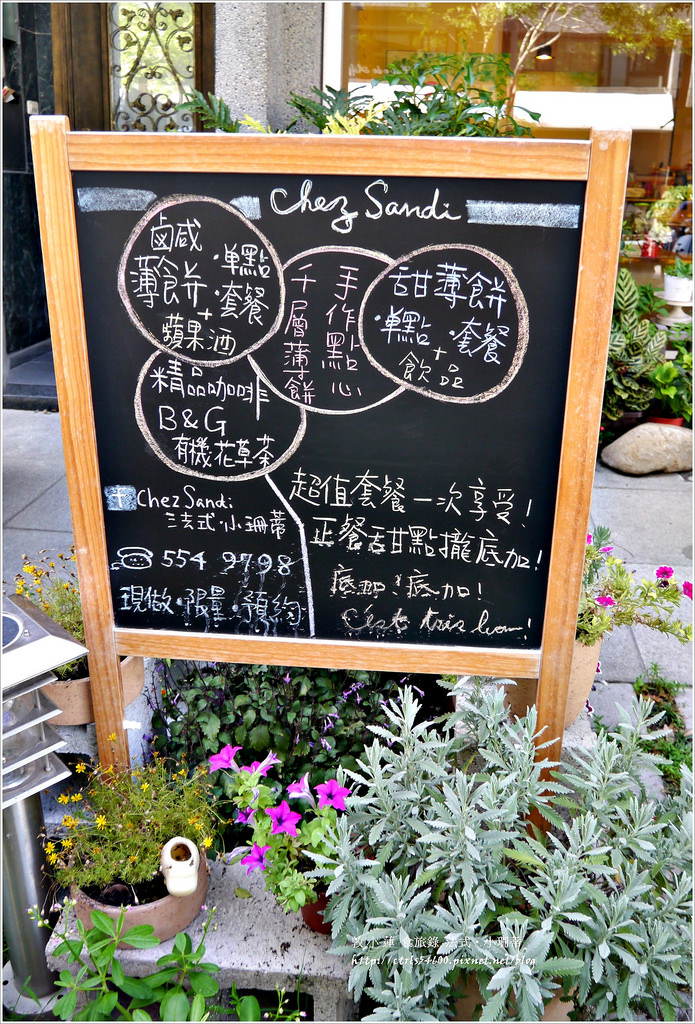 Chez Sandi
鹵咸
薄餅
·單點
·套餐
+
蘋果酒
手作點心
千層薄餅
甜薄餅
·單點·套餐
+
飲品
精品咖啡
B&G
有機花草茶
Chez Sandi
法式·小珊蒂
554 9798
現做·限量·預約
超值套餐一次享受!
正餐甜點攏底加!
底加!底加!
C'est très bon!
http://ctrls4600.pixnet.net/blog